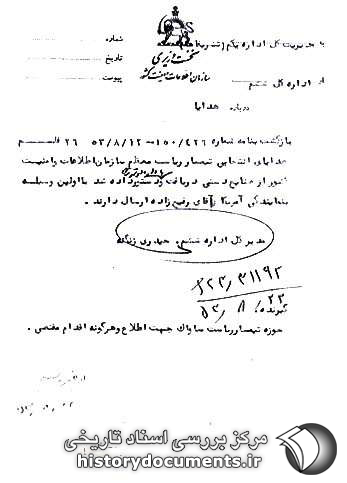 به مدیریت کل اداره یکم
شماره
نخست وزیری
تاریخ
سازمان اطلاعات و امنیت کشور
پیوست
از اداره کل ششم
درباره هدایا
بازگشت بنامه شماره ۱۵۰/۴۲۶ - ۵۳/۸/۱۲ ۲۶ قلم
هدایای انتخابی تیمسار ریاست معظم سازمان اطلاعات و امنیت
کشور از صنایع دستی دریافت و دستور داده شد با اولین وسیله
بنمایندگی آمریکا آقای رفیع زاده ارسال دارند .
مدیر کل اداره ششم . حیدری زنگنه
۳۲۳/۳۱۱۹۲
۵۳/۸/۲۲
گیرنده :
حوزه تیمسار ریاست ساواک جهت اطلاع و هرگونه اقدام مقتضی .
مرکز بررسی اسناد تاریخی
historydocuments.ir